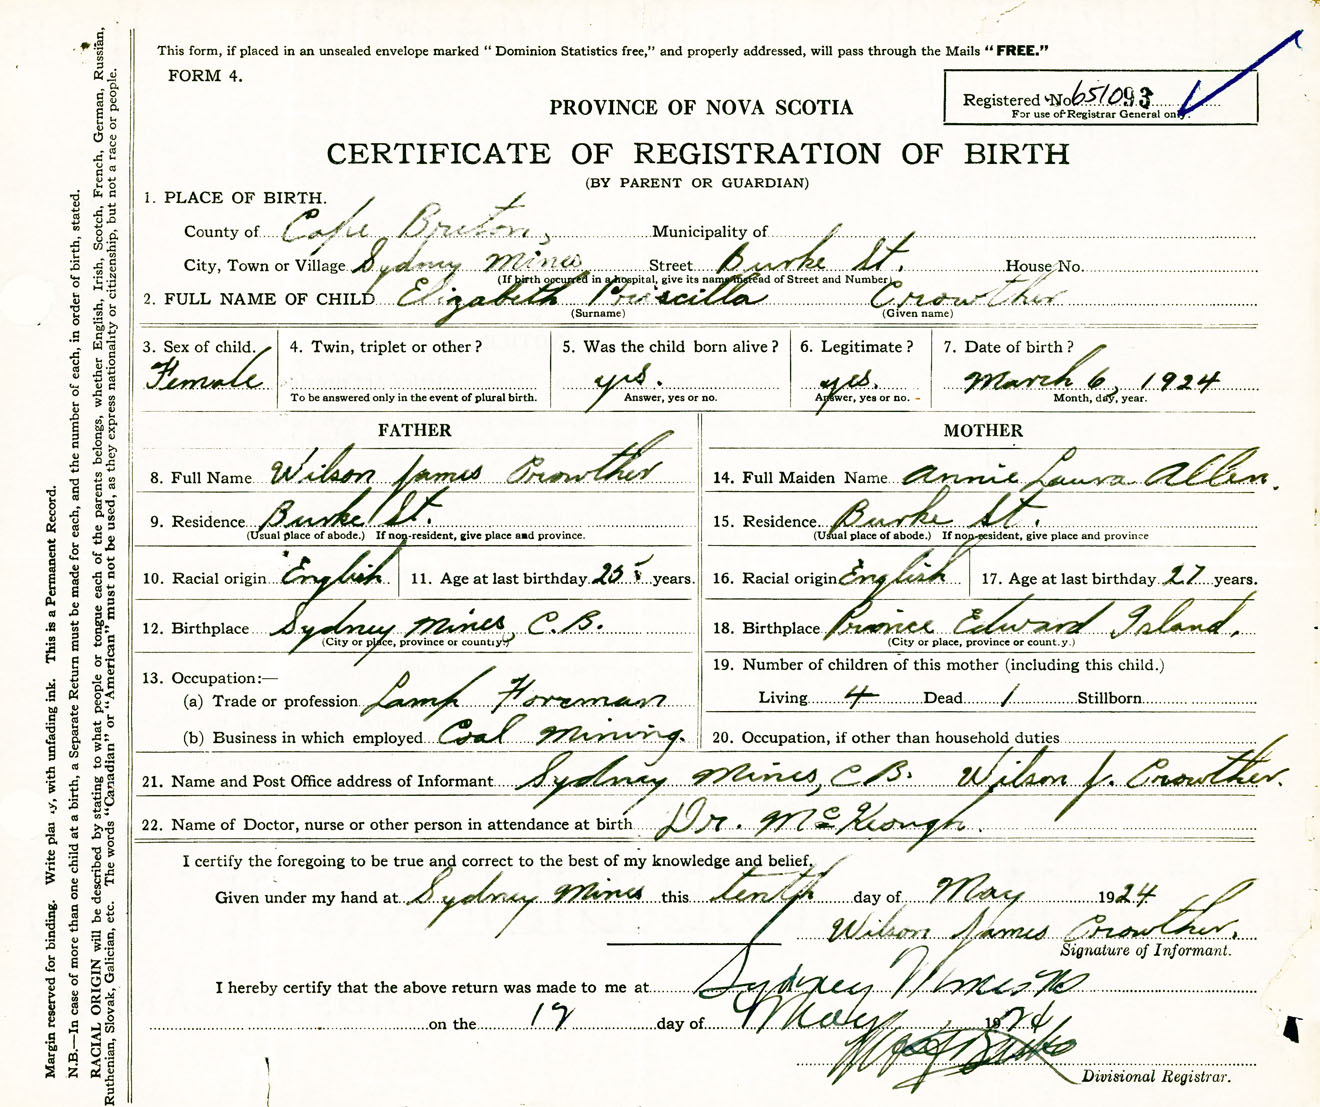 This form, if placed in an unsealed envelope marked "Dominion Statistics free," and properly addressed, will pass through the Mails "FREE."
FORM 4.
Registered No. 651093
For use of Registrar General only.
PROVINCE OF NOVA SCOTIA
CERTIFICATE OF REGISTRATION OF BIRTH
(BY PARENT OR GUARDIAN)
1. PLACE OF BIRTH.
County of Cape Breton, Municipality of
City, Town or Village Sydney Mines Street Burke St. House No.
(If birth occurred in a hospital, give its name instead of Street and Number)
2. FULL NAME OF CHILD Elizabeth Priscilla Crowther
(Surname) (Given name)
3. Sex of child. 4. Twin, triplet or other? 5. Was the child born alive? 6. Legitimate? 7. Date of birth?
Female yes. yes. March 6, 1924
To be answered only in the event of plural birth. Answer, yes or no. Answer, yes or no. Month, day, year.
FATHER MOTHER
8. Full Name Wilson James Crowther 14. Full Maiden Name Annie Laura Allen.
9. Residence Burke St. 15. Residence Burke St.
(Usual place of abode.) If non-resident, give place and province. (Usual place of abode.) If non-resident, give place and province
10. Racial origin English 11. Age at last birthday 25 years. 16. Racial origin English 17. Age at last birthday 27 years.
12. Birthplace Sydney Mines, C.B. 18. Birthplace Prince Edward Island.
(City or place, province or country) (City or place, province or country.)
13. Occupation:— 19. Number of children of this mother (including this child.)
(a) Trade or profession Lamp Foreman Living 4 Dead 1 Stillborn
(b) Business in which employed Coal Mining. 20. Occupation, if other than household duties
21. Name and Post Office address of Informant Sydney Mines, C.B. Wilson J. Crowther.
22. Name of Doctor, nurse or other person in attendance at birth Dr. McKeough.
I certify the foregoing to be true and correct to the best of my knowledge and belief.
Given under my hand at Sydney Mines this tenth day of May 1924
Wilson James Crowther.
Signature of Informant.
I hereby certify that the above return was made to me at Sydney Mines
on the 12 day of May 1924
Divisional Registrar.
Margin reserved for binding. Write plainly, with unfading ink. This is a Permanent Record.
N.B.—In case of more than one child at a birth, a Separate Return must be made for each, and the number of each, in order of birth, stated.
RACIAL ORIGIN will be described by stating to what people or tongue each of the parents belongs, whether English, Irish, Scotch, French, German, Russian,
Ruthenian, Slovak, Galician, etc. The words "Canadian" or "American" must not be used, as they express nationality or citizenship, but not a race or people.